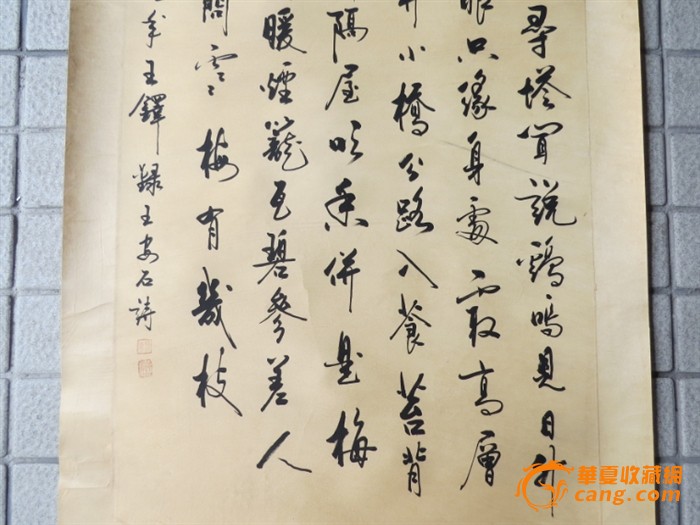 尋塔聞說鷄鳴見日升
眼只緣身處最高層
小橋分路入蒼苔背
隔屋吹香併是梅
暖煙籠瓦碧參差人
問雲〻梅有幾枝
年王鐸錄王安石詩
華夏收藏網
cang.com